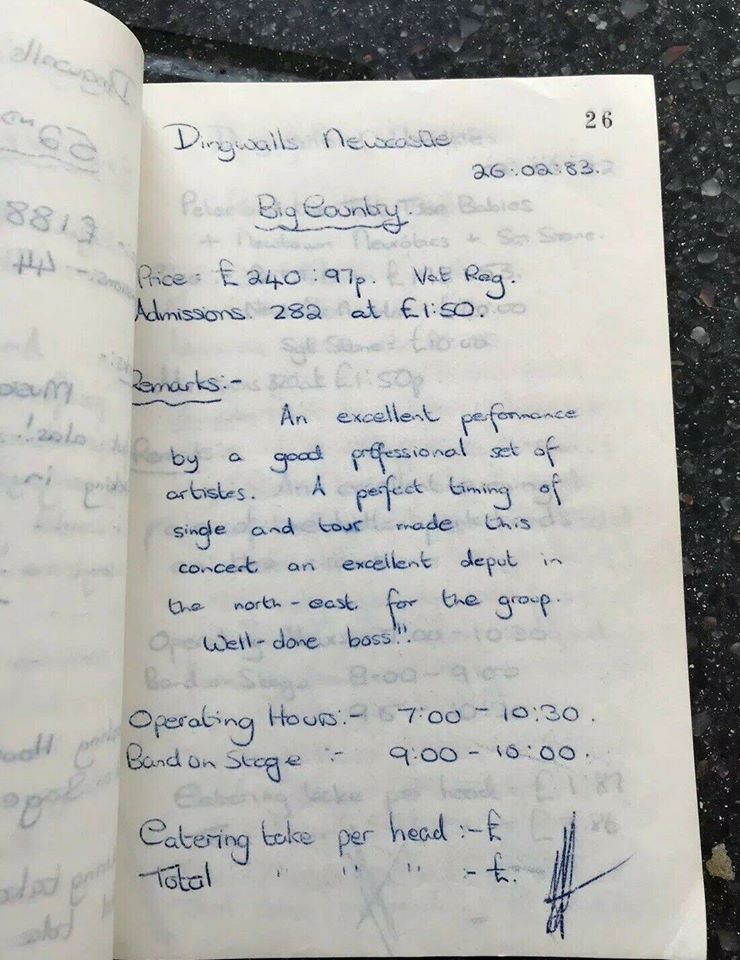 26
Dingwalls Newcastle
26:02:83.
Big Country.
Price: £240:97p. Vat Reg.
Admissions 282 at £1:50.
Remarks:-
An excellent performance
by a good proffessional set of
artistes. A perfect timing of
single and tour made this
concert an excellent deput in
the north-east for the group.
Well-done boss!!
Operating Hours:- 7:00 - 10:30.
Band on Stage :- 9:00 - 10:00.
Catering take per head :- £
Total " " " :- £.